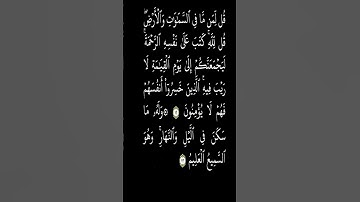 قُل لِّمَن مَّا فِي السَّمَٰوَٰتِ وَالْأَرْضِۖ
قُل لِّلَّهِۚ كَتَبَ عَلَىٰ نَفْسِهِ الرَّحْمَةَۚ
لَيَجْمَعَنَّكُمْ إِلَىٰ يَوْمِ الْقِيَٰمَةِ لَا
رَيْبَ فِيهِۚ الَّذِينَ خَسِرُوٓا۟ أَنفُسَهُمْ
فَهُمْ لَا يُؤْمِنُونَ ۞ وَلَهُۥ مَا
سَكَنَ فِي الَّيْلِ وَالنَّهَارِۚ وَهُوَ
السَّمِيعُ الْعَلِيمُ